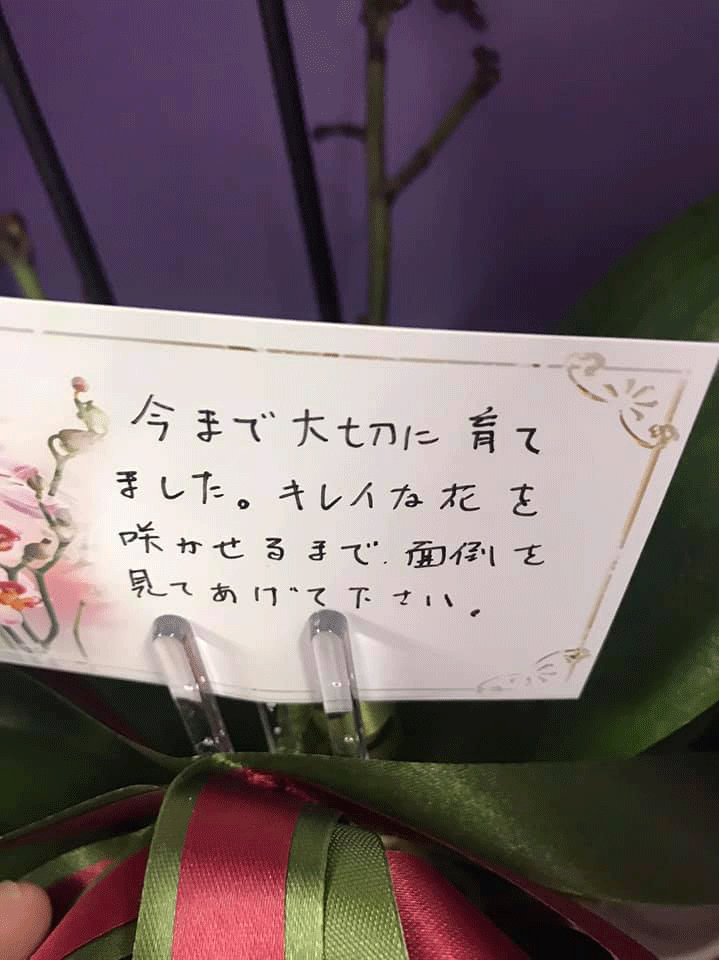 今まで大切に育て
ました。キレイな花を
咲かせるまで、面倒を
見てあげて下さい。